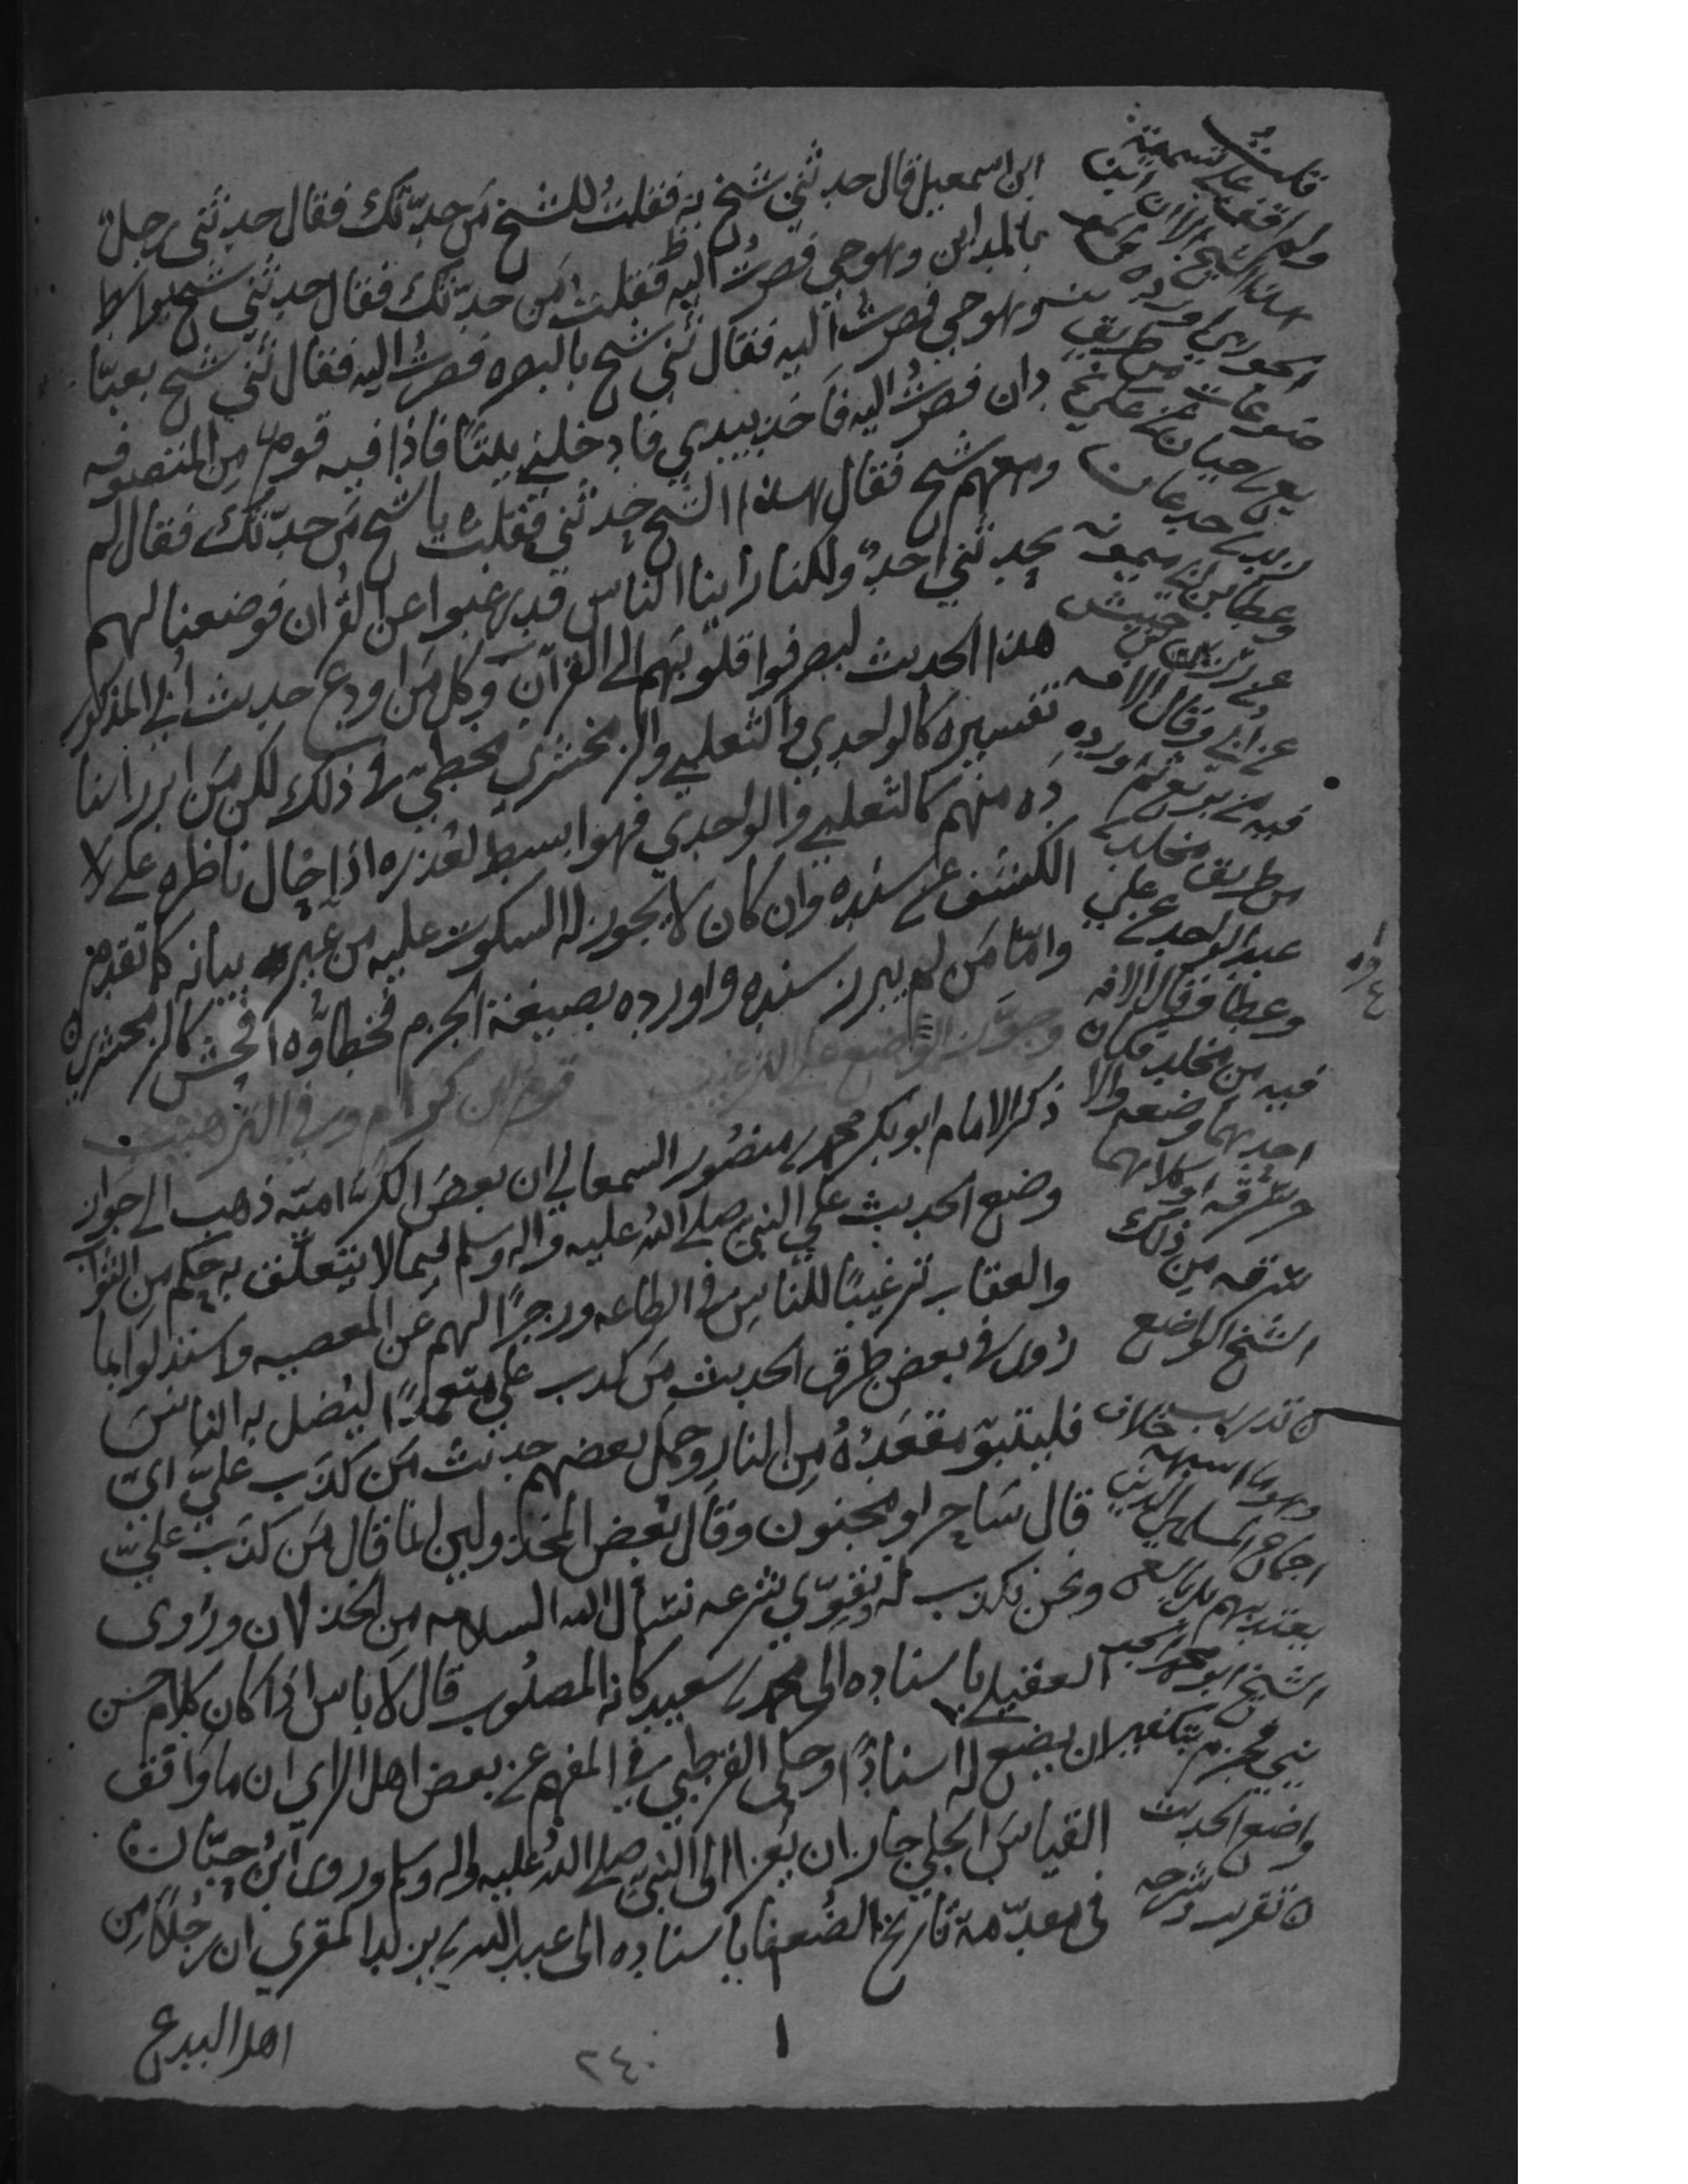 ابن اسمعيل قال حدثني شيخ به فقلتُ للشيخ مَن حدّثك فقال حدثني رجلٌ
بالمداين وهو حي فصرتُ اليه فقلت مَن حدّثك فقال حدثني شيخ بواسط
وهو حي فصرتُ اليه فقال ثني شيخ بالبصره فصرتُ اليه فقال ثني شيخ بعبّا
دان فصرتُ اليه فاخذ بيدي فادخلني بيتًا فاذا فيه قوم من المتصوفه
ومعهم شيخ فقال هذا الشيخ حدثني فقلت يا شيخ مَن حدّثك فقال لم
يحدثني احدٌ ولكنا راينا الناس قد رغبوا عن القرآن فوضعنا لهم
هذا الحديث ليصرفوا قلوبَهم الى القرآن وكل مَن اودع حديث اُبي المذكور
تفسيره كالواحدي والثعلبي والزمخشري مخطي في ذلك لكن مَن ابرز اسنا
دَه منهم كالثعلبي والواحدي فهو ابسط لعُذره اذا حال ناظره على لا
الكشف عن سنده وان كان لا يجوز له السكوت عليه من غير بيانه كما تقدم
وامّا مَن لم يبرز سنده واورده بصيغة الجزم فخطاؤه افحش كالزمخشري ه
وجوّز الوضع على الترغيب قوم ابن كرام وفي الترهيب
ذكر الامام ابو بكر محمد بن منصُور السمعاني ان بعضَ الكرّاميّه ذهب الى جواز
وضع الحديث على النبي صلى الله عليه واله وسلم فيما لا يتعلّق به حكم من الثواب
والعقاب ترغيبًا للناس في الطاعه وزجرًا لهم عن المعصيه واستدلوا بما
رُوى في بعض طرق الحديث مَن كذب عليّ متعمدًا ليُضل به الناسَ
فليتبوّ مقعَدَهُ مِن النار وحمل بعضهم حديث مَن كذَب عليَّ ايّ
قال سَاحر او مجنون وقال بعض المخذولين انما قال مَن كذَب عليّ
ونحن نكذب له ونقوّي شرعه نسأل الله السلامه من الخذلان وروى
العقيلي باسناده الى محمد بن سعيد كانه المصلُوب قال لا باس اذا كان كلام حسن
ان يضع له اسنادًا وحكى القرطبي في المفهم عن بعض اهل الراي ان ما وافق
القياسَ الجلي جاز ان يُعزا الى النبي صلى الله عليه واله وسلم وروى ابن حبّان
في مقدّمة تاريخ الضُعفا باسناده الى عبد الله بن يزيد المقري ان رجلًا من
اهل البدع
قلتُ
ولم اقف على تسمية
هذا الشيخ الا ان ابن
الجوزي اورده في
ضوعات من طريق
يع بن حبان عن علي بن
زيد بن جدعان
وعطا بن ابي ميمونه
عن زر بن حبيش
عن اُبي وقال الافه
فيه من بزيع ثم اورده
من طريق مخلد بن
عبد الواحد عن علي
وعطا وقال الافه
فيه من مخلد فكان
احدهما وضعه والا
خر سرقه او كلاهما
سرقه من ذلك
الشيخ الواضع
ه تدريب
خلاف
اجماع المسلمين الذين
يعتد بهم بل بالغ
الشيخ ابو محمد الجو
يني فجزم بتكفير
واضع الحديث
ه تقريب وشرحه
٢٤٠